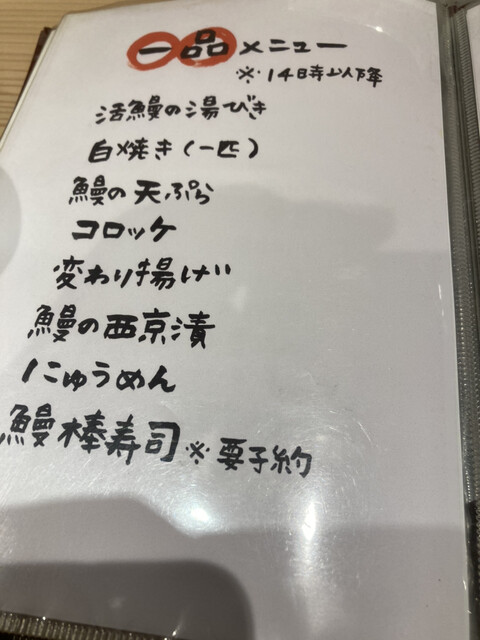 一品メニュー
※14時以降
活鰻の湯びき
白焼き(一匹)
鰻の天ぷら
コロッケ
変わり揚げ
鰻の西京漬
にゅうめん
鰻棒寿司※要予約